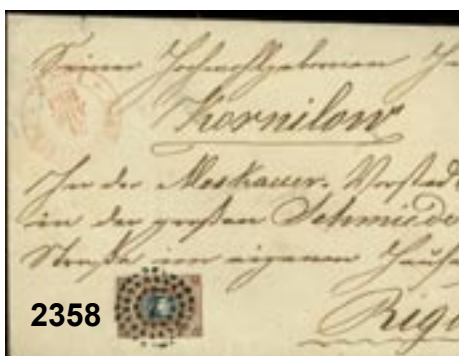 Seiner Hochwohlgeboren
Kornilow
In der Moskauer. Vorstadt
in der großen Schmiede
Straße im eigenen Hause
2358
Riga